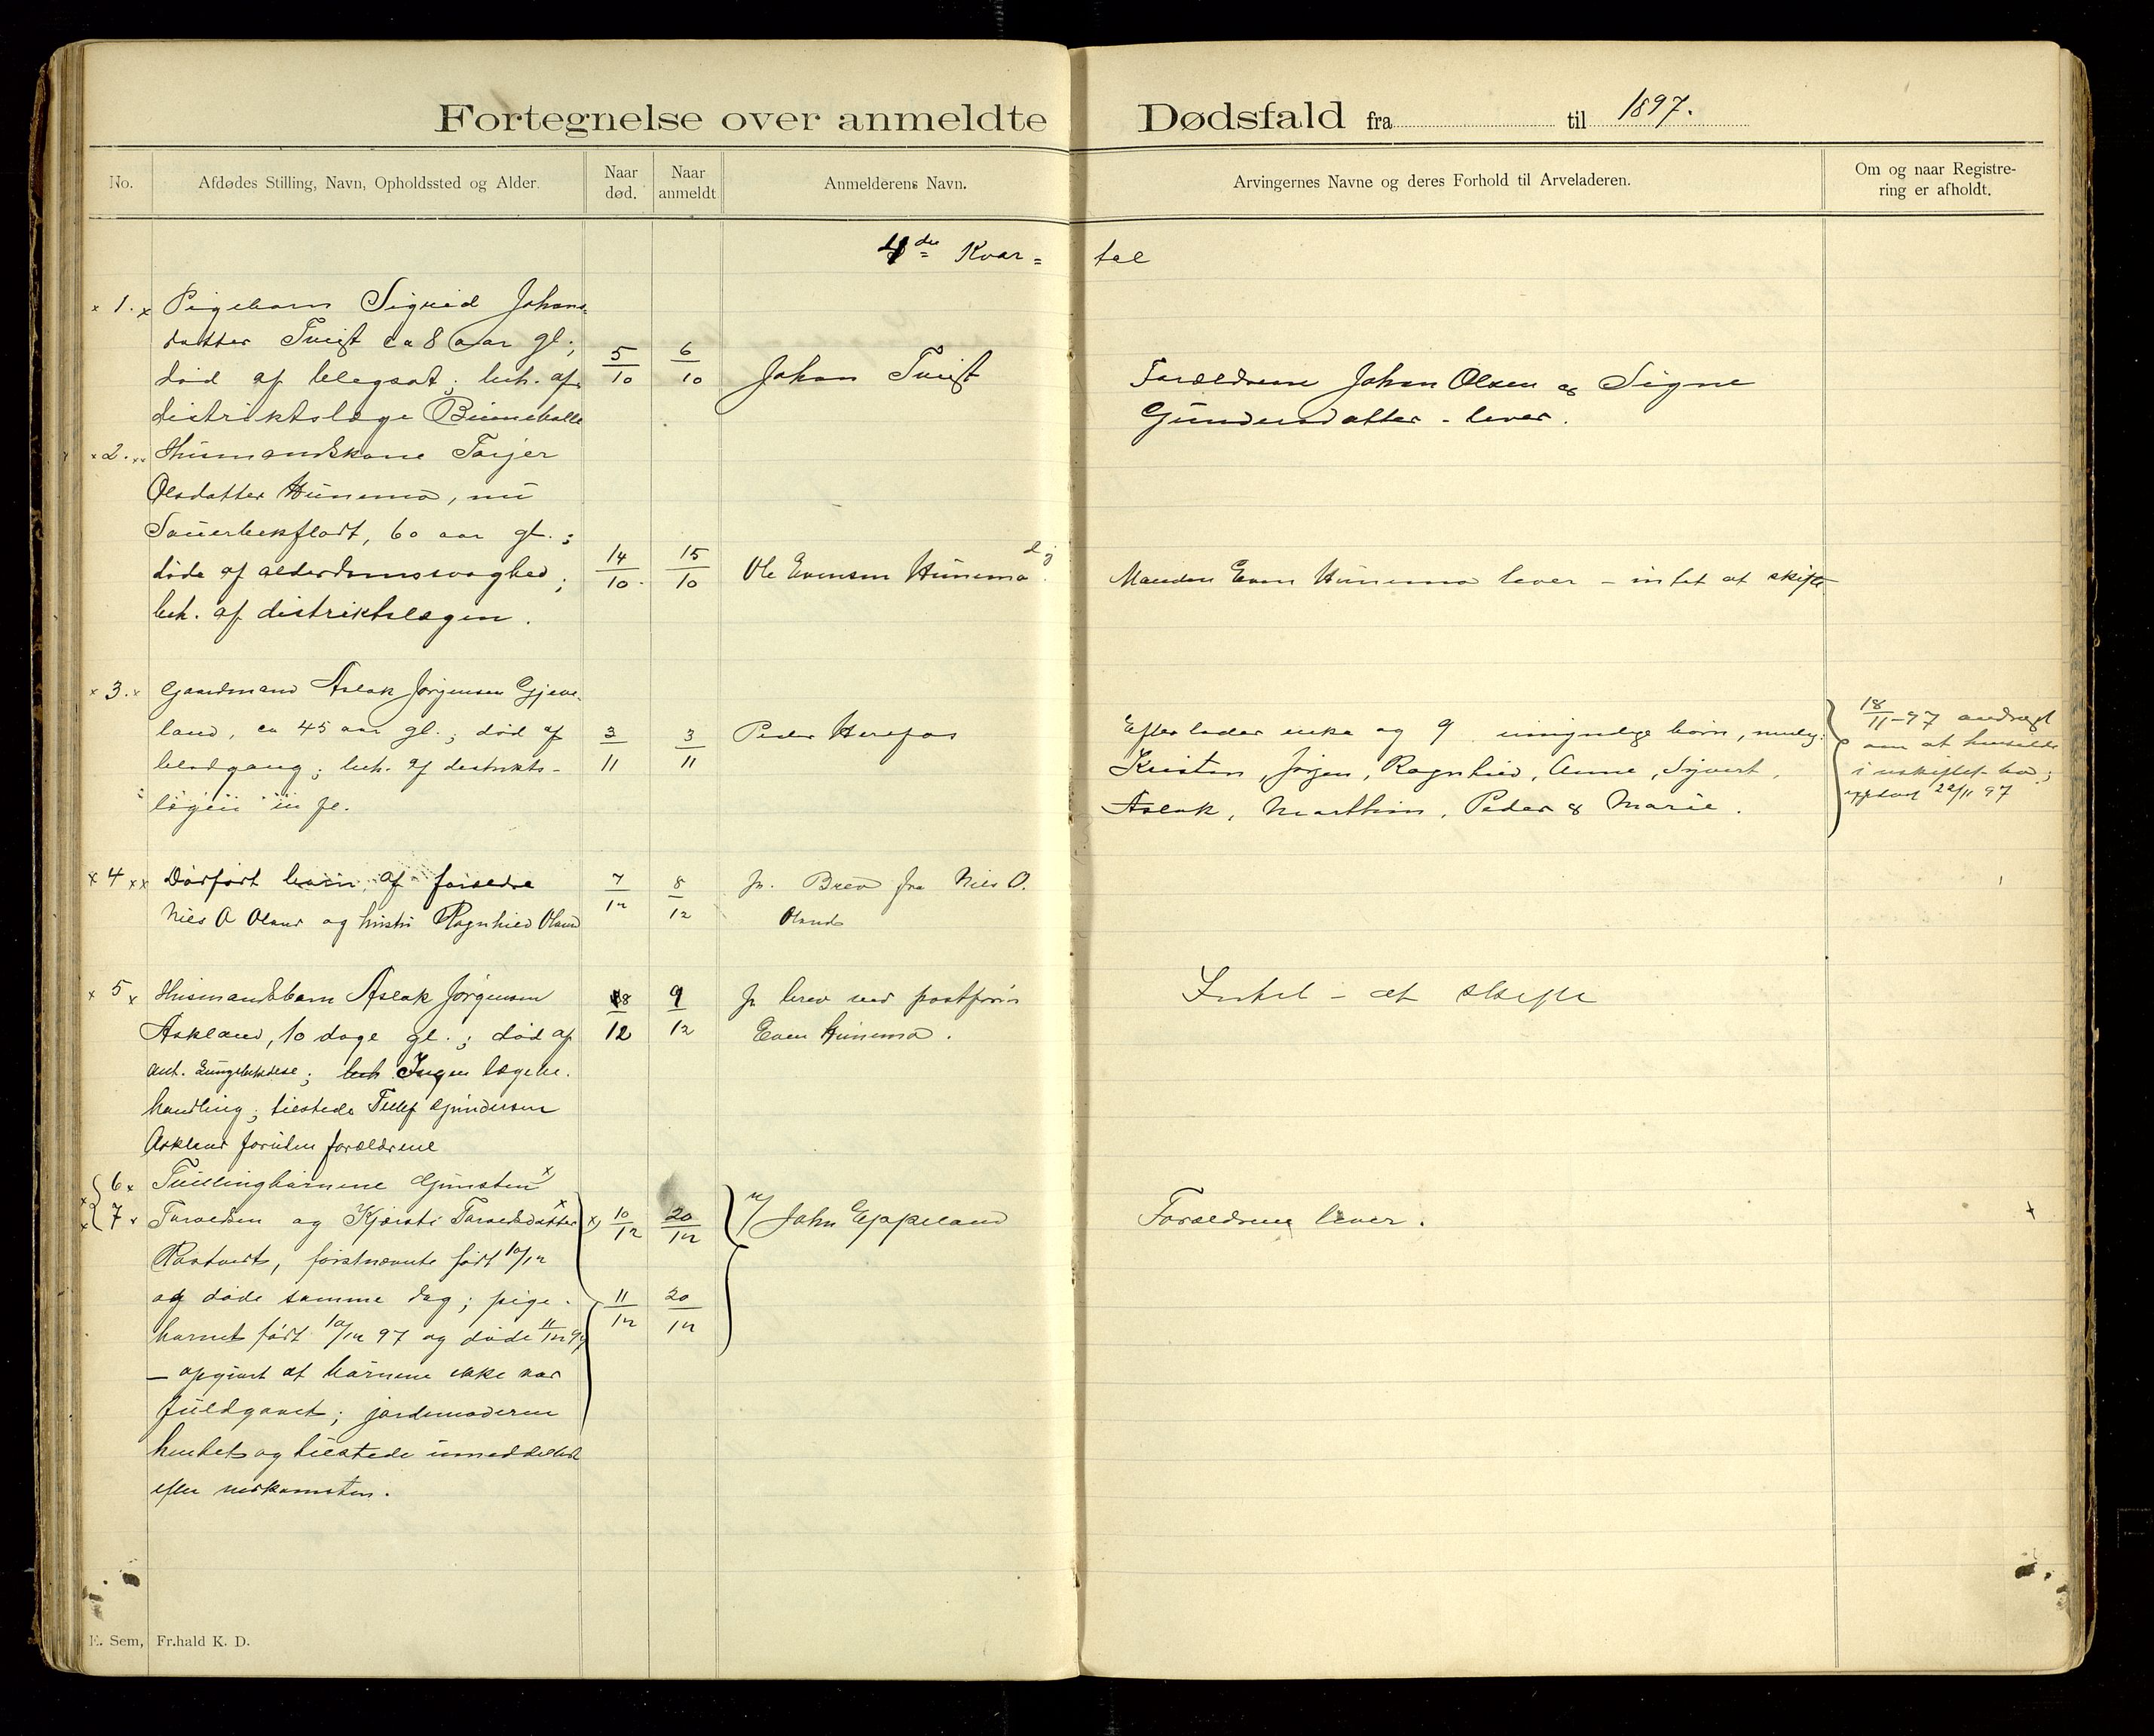 Fortegnelse over anmeldte Dødsfald fra til 1897.
No.
Afdødes Stilling, Navn, Opholdssted og Alder.
Naar død.
Naar anmeldt
Anmelderens Navn.
Arvingernes Navne og deres Forhold til Arveladeren.
Om og naar Registre-
ring er afholdt.
4de Kvar= tal
× 1. × Pigebarn Sigrid Johans-
datter Tveit ca 8 aar gl.;
død af blegsot; beh. af
distriktslæge
5/10 6/10 Johan Tveit
Forældrene Johan Olsen og Signe
Gundersdatter - lever.
× 2. ×× Husmandskone Torjer
Olsdatter Hunemo, nu
60 aar gl.;
døde af alderdomssvaghed;
beh. af distriktslægen.
14/10 15/10 Ole Evensen Hunemo
Manden Even Hunemo lever - intet at skifte
× 3. × Gaardmand Aslak Jørgensen Gjeve-
land, ca 45 aar gl.; død af
blodgang; beh. af distrikts-
3/11 3/11 Peder Herefos
Efterlader enke og 9 umyndige børn, nemlig:
Kristen, Jørgen, Ragnhild, Anne, Syvert,
Aslak, Marthin, Peder & Marie.
18/11-97 andragt
om at hensidde
i uskiftet bo;
22/11 97
× 4 ×× Dødfødt barn af forældre
Niels O Oland og hustru Ragnhild Oland
7/12 8/12 Pr. Brev fra Niels O.
Oland
× 5 × Husmandsbarn Aslak Jørgensen
Askland, 10 dage gl.; død af
ant. Lungebetændelse; beh. Ingen lægebe-
handling; tilstede Tellef Gundersen
Askland foruden forældrene
8/12 9/12 Pr brev ved postfører
Even Hunemo.
Intet - at skifte
6 × Tvillingbørnene Gunsten ×
7 × Tarvedsen og Kjersti Tarveds datter ×
førstnævnte født 10/12
og døde samme dag; pige-
barnet født 10/12 97 og døde 11/12 97
- opgivet at børnene ikke var
fuldgaaet; jordemoderen
hentet og tilstede umiddelbart
efter nedkomsten.
10/12 20/12
11/12 20/12
John Eppeland
Forældrene lever. ×
E. Sem, Fr.hald K. D.